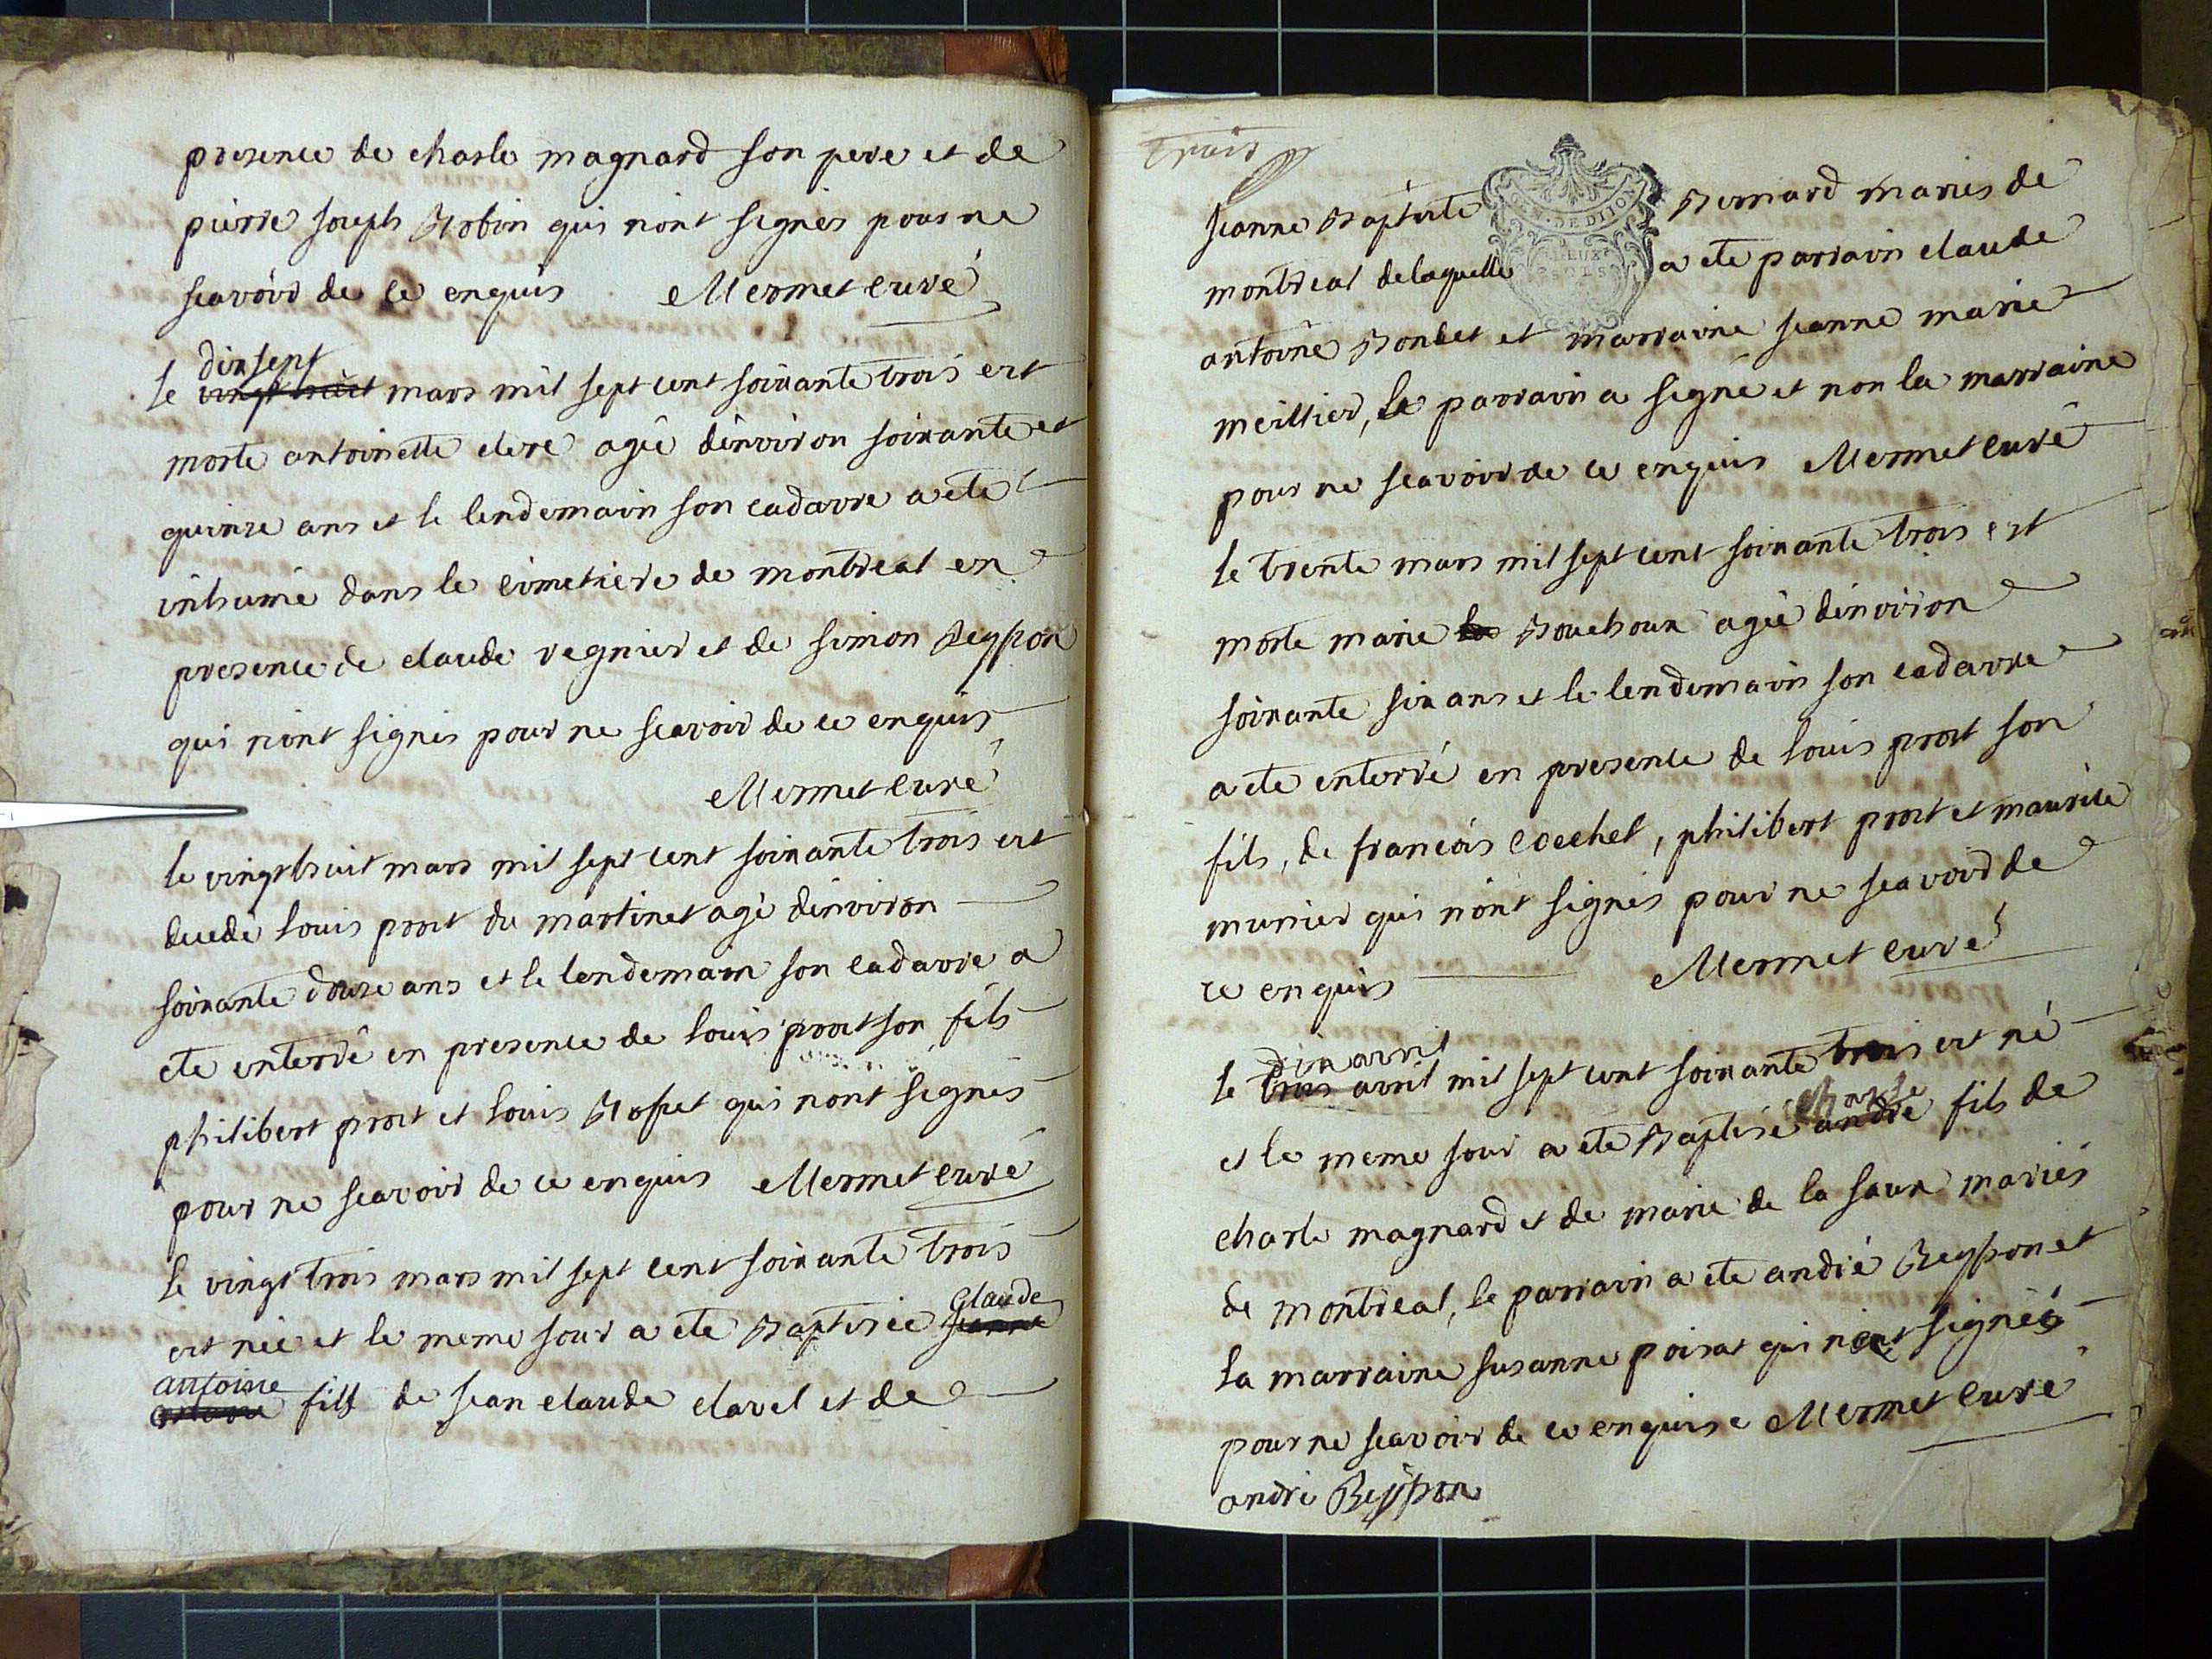 presence de charle magnard son pere et de
pierre joseph Robin qui n'ont signés pour ne
scavoir de ce enquis Mermet curé
dix sept
le vingt huit mars mil sept cent soixante trois est
morte antoinette clere agée d'environ soixante et
quinze ans et le lendemain son cadavre a ete
inhumé dans le cimetiere de montreal en
presence de claude regnier et de simon Reysson
qui n'ont signés pour ne scavoir de ce enquis
Mermet curé
le vingt huit mars mil sept cent soixante trois est
decedé louis prost du martinet agé d'environ
soixante douze ans et le lendemain son cadavre a
ete enterré en presence de louis prost son fils
philibert prost et louis Rosset qui n'ont signés
pour ne scavoir de ce enquis Mermet curé
le vingt trois mars mil sept cent soixante trois
est née et le meme jour a ete Baptisée Claude
antoine fils de jean claude clavel et de
trois
jeanne Baptiste Bernard mariés de
G. N. DE DIJON
montreal delaquelle a ete parrain claude
DEUX SOLS
antoine Bondet et marraine jeanne marie
meillier, le parrain a signé et non la marraine
pour ne scavoir de ce enquis Mermet curé
le trente mars mil sept cent soixante trois est
morte marie Bouchoux agée d'environ
soixante six ans et le lendemain son cadavre
a ete enterré en presence de louis prost son
fils, de francois Cochet, philibert prost et maurice
munier qui n'ont signés pour ne scavoir de
ce enquis Mermet curé
dix avril
le trois avril mil sept cent soixante trois est né
charle
et le meme jour a ete Baptisé andré fils de
charle magnard et de marie de la saux mariés
de montreal, le parrain a ete andré Reysson et
la marraine susanne poisat qui n'ont signés
pour ne scavoir de ce enquise Mermet curé
andré Reysson